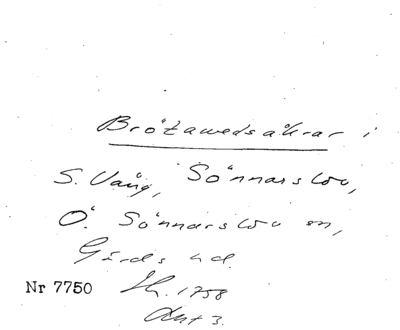 Brötawedsåkrar i
S. Vång, Sönnarslöv,
Ö. Sönnarslöv sn,
Gärds hd.
Nr 7750 Sk. 1758
Akt 3.